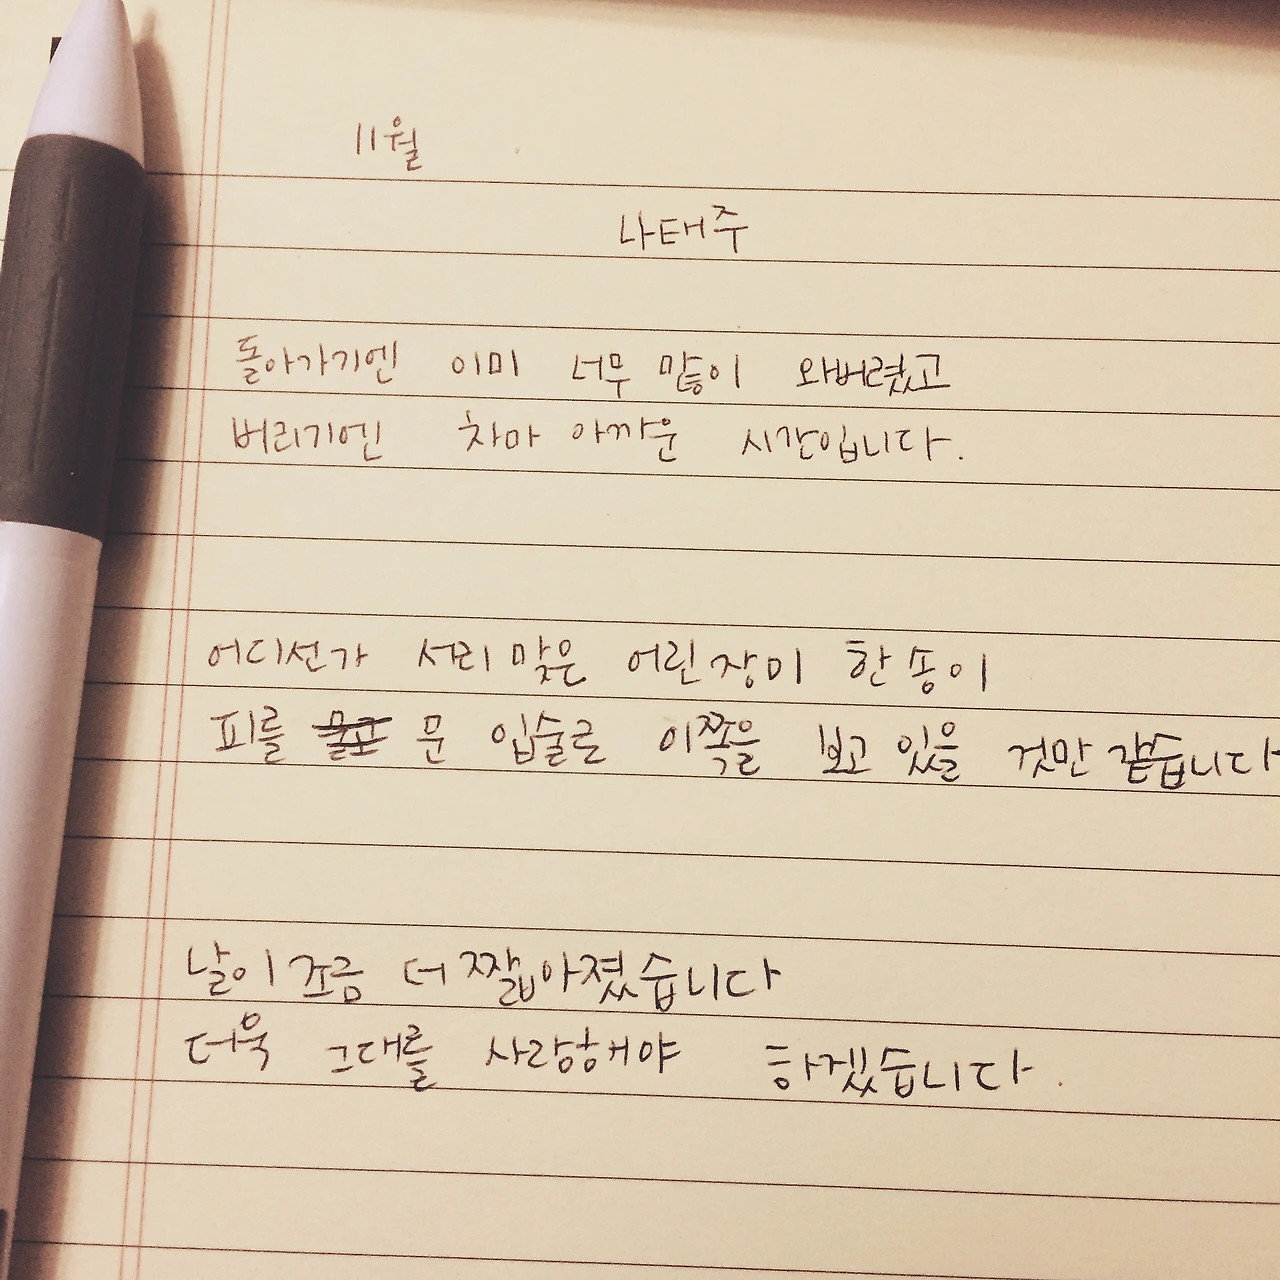 11월
나태주
돌아가기엔 이미 너무 많이 와버렸고
버리기엔 차마 아까운 시간입니다.
어디선가 서리 맞은 어린 장미 한 송이
피를 문 입술로 이쪽을 보고 있을 것만 같습니다
날이 조금 더 짧아졌습니다
더욱 그대를 사랑해야 하겠습니다.